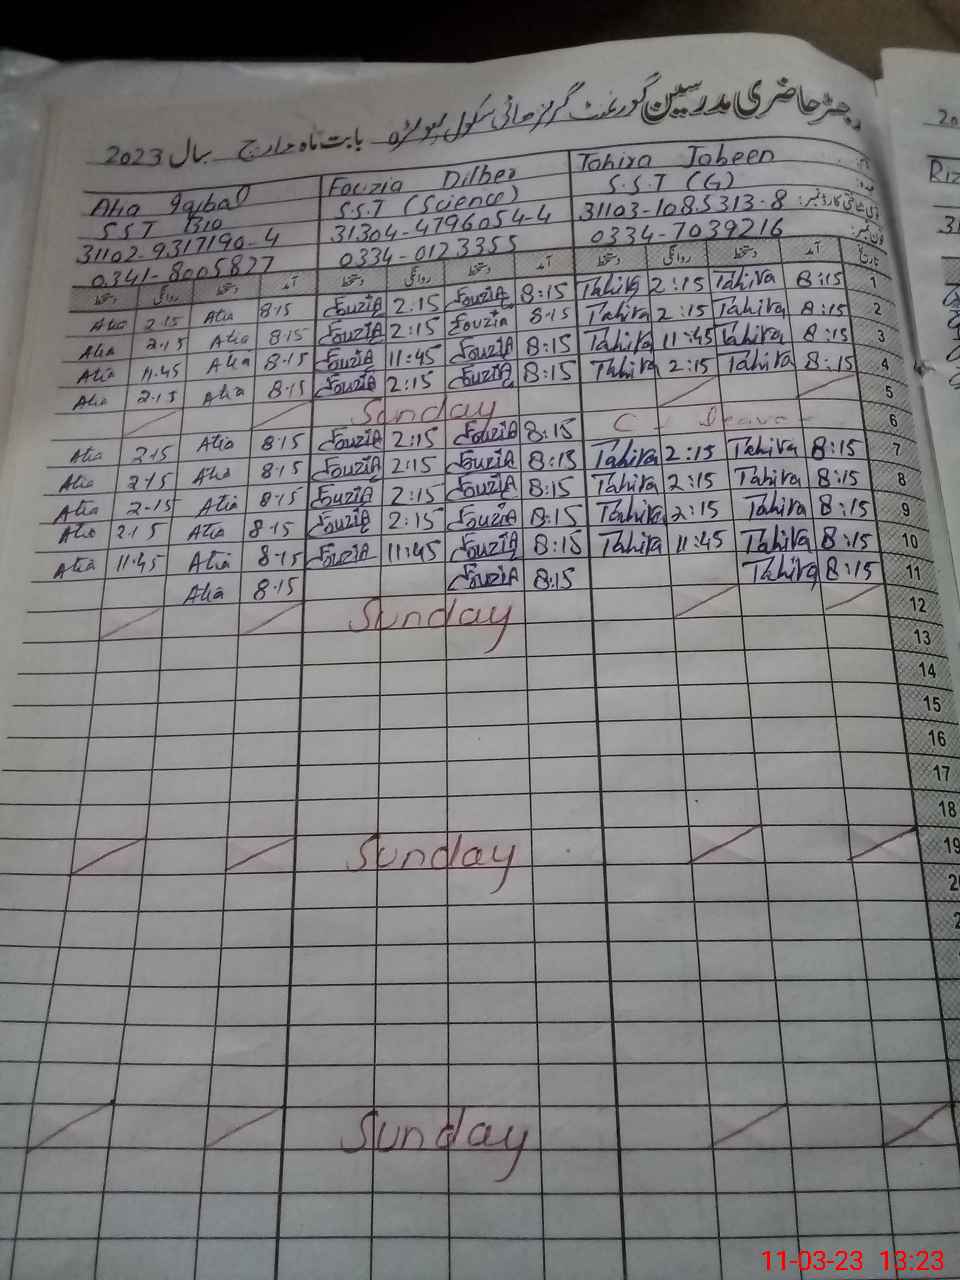 رجسٹر حاضری مدرسین گورنمنٹ گرلز ہائی سکول بابت ماہ مارچ سال 2023
Tahira Jabeen
Fouzia Dilber
Atia Iqbal
S.S.T (G)
S.S.T (Science)
SST Bio
31103-1085313-8
31304-4796054-4
31102-9317190-4
فون نمبر:
0334-7039216
0334-0123355
0341-8005827
تاریخ آمد دستخط روانگی دستخط آمد دستخط روانگی دستخط آمد دستخط روانگی دستخط
1 8:15 Tahira 2:15 Tahira 8:15 Fouzia 2:15 Fouzia 8:15 Atia 2:15 Atia
2 8:15 Tahira 2:15 Tahira 8:15 Fouzia 2:15 Fouzia 8:15 Atia 2:15 Atia
3 8:15 Tahira 11:45 Tahira 8:15 Fouzia 11:45 Fouzia 8:15 Atia 11:45 Atia
4 8:15 Tahira 2:15 Tahira 8:15 Fouzia 2:15 Fouzia 8:15 Atia 2:15 Atia
5 Sunday
6 C Leave 8:15 Fouzia 2:15 Fouzia 8:15 Atia 2:15 Atia
7 8:15 Tahira 2:15 Tahira 8:15 Fouzia 2:15 Fouzia 8:15 Atia 2:15 Atia
8 8:15 Tahira 2:15 Tahira 8:15 Fouzia 2:15 Fouzia 8:15 Atia 2:15 Atia
9 8:15 Tahira 2:15 Tahira 8:15 Fouzia 2:15 Fouzia 8:15 Atia 2:15 Atia
10 8:15 Tahira 11:45 Tahira 8:15 Fouzia 11:45 Fouzia 8:15 Atia 11:45 Atia
11 8:15 Tahira 8:15 Fouzia 8:15 Atia
12 Sunday
13
14
15
16
17
18
19 Sunday
Sunday
11-03-23 13:23